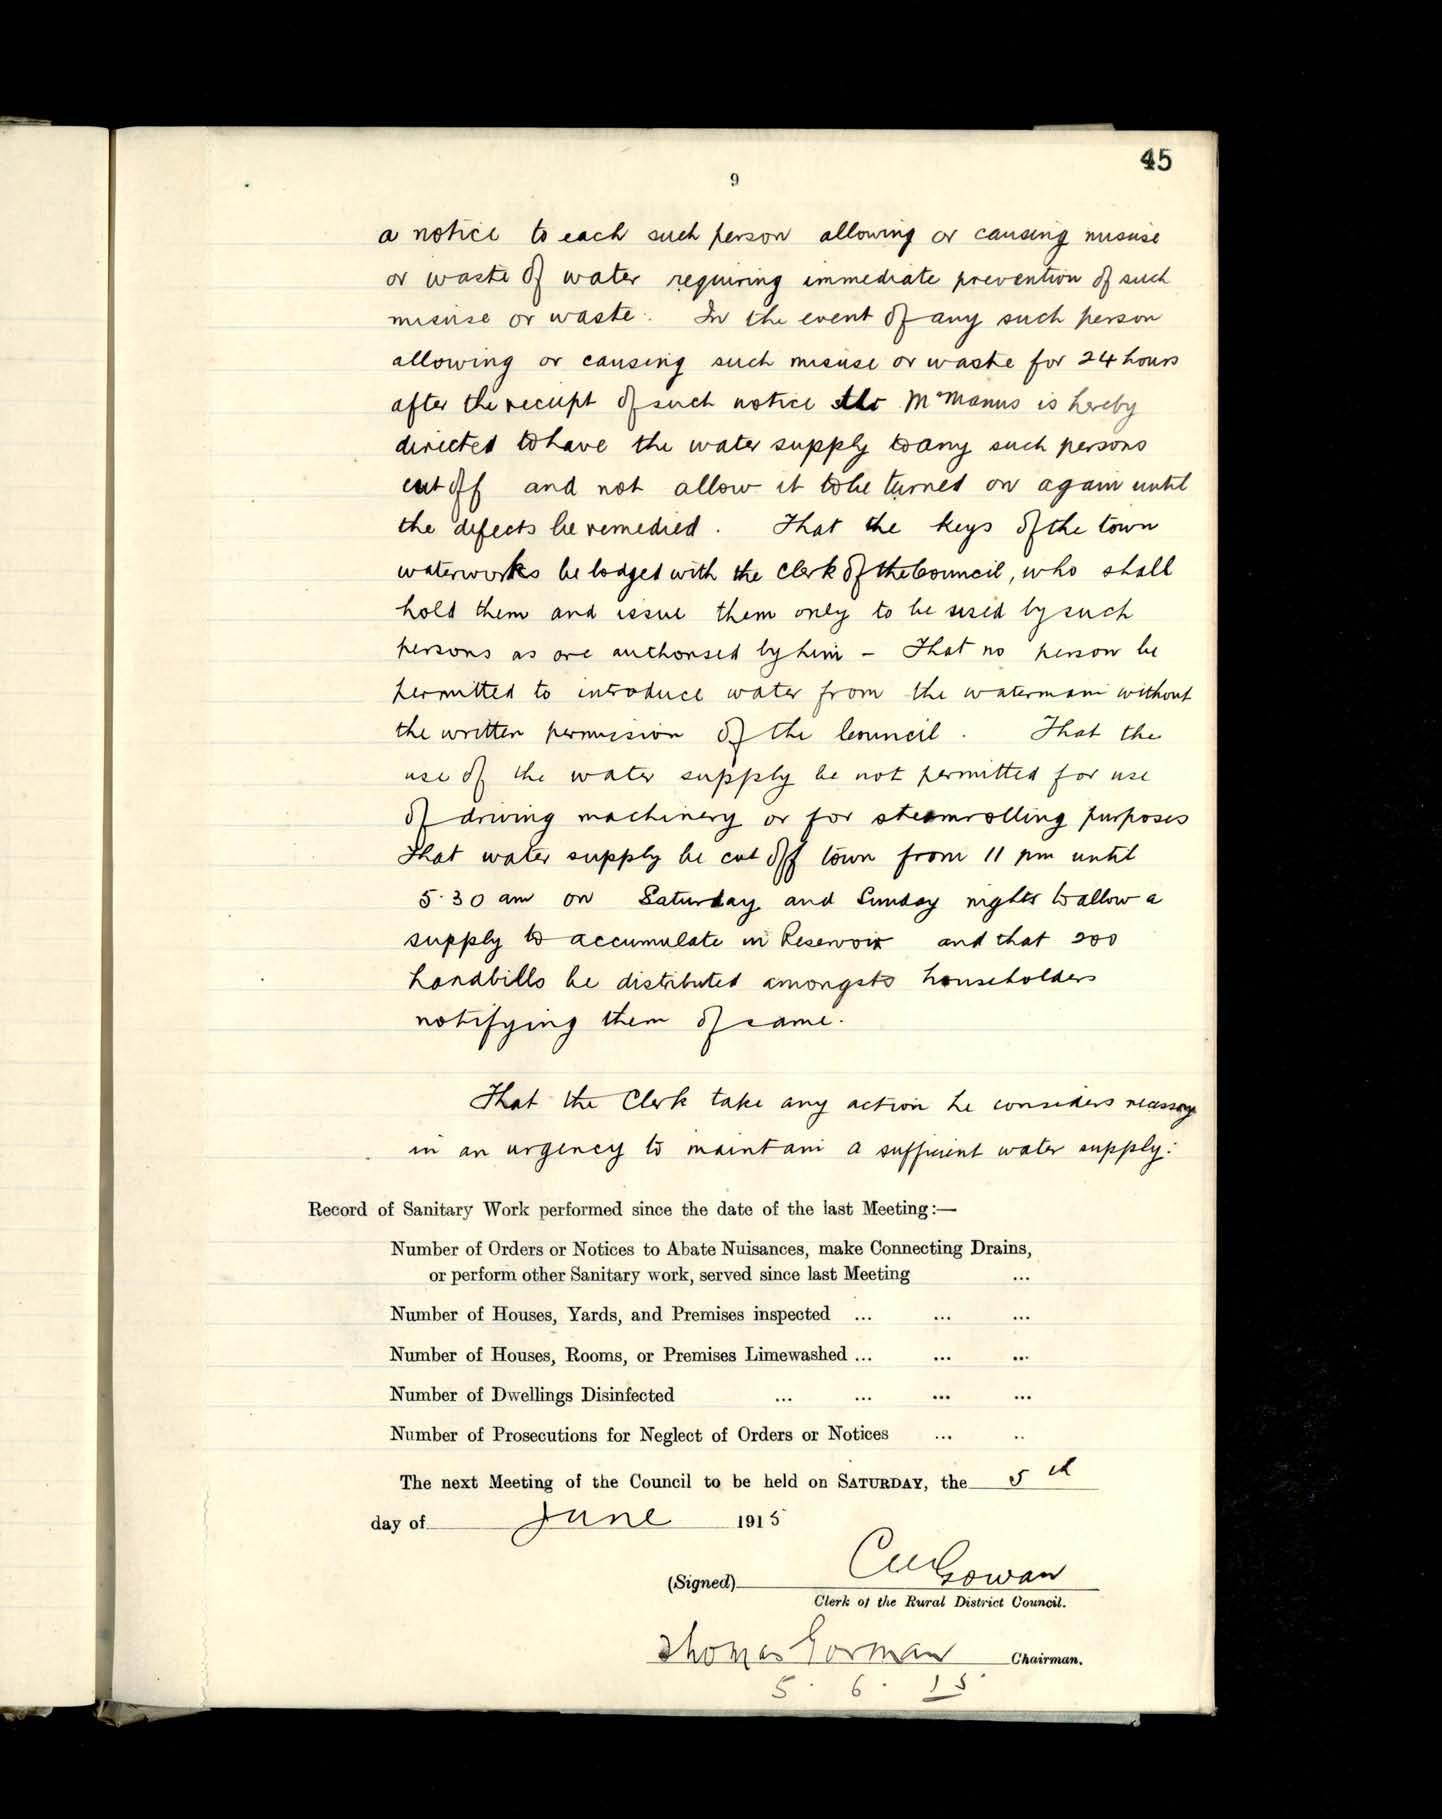 45
9
a notice to each such person allowing or causing misuse
or waste of water requiring immediate prevention of such
misuse or waste. In the event of any such person
allowing or causing such misuse or waste for 24 hours
after the receipt of such notice Mr McManus is hereby
directed to have the water supply to any such persons
cut off and not allow it to be turned on again until
the defects be remedied. That the keys of the town
waterworks be lodged with the Clerk of the Council, who shall
hold them and issue them only to be used by such
persons as are authorised by him - That no person be
permitted to introduce water from the watermain without
the written permission of the Council. That the
use of the water supply be not permitted for use
of driving machinery or for steamrolling purposes
That water supply be cut off town from 11 pm until
5.30 am on Saturday and Sunday nights to allow a
supply to accumulate in Reservoir and that 200
handbills be distributed amongsts householders
notifying them of same.
That the Clerk take any action he considers necessary
in an urgency to maintain a sufficient water supply:
Record of Sanitary Work performed since the date of the last Meeting:—
Number of Orders or Notices to Abate Nuisances, make Connecting Drains,
or perform other Sanitary work, served since last Meeting ...
Number of Houses, Yards, and Premises inspected ... ... ...
Number of Houses, Rooms, or Premises Limewashed ... ... ...
Number of Dwellings Disinfected ... ... ... ...
Number of Prosecutions for Neglect of Orders or Notices ... ..
The next Meeting of the Council to be held on SATURDAY, the 5th
day of June 1915
(Signed) Gowan
Clerk of the Rural District Council.
Thomas Gorman Chairman.
5. 6. 15.